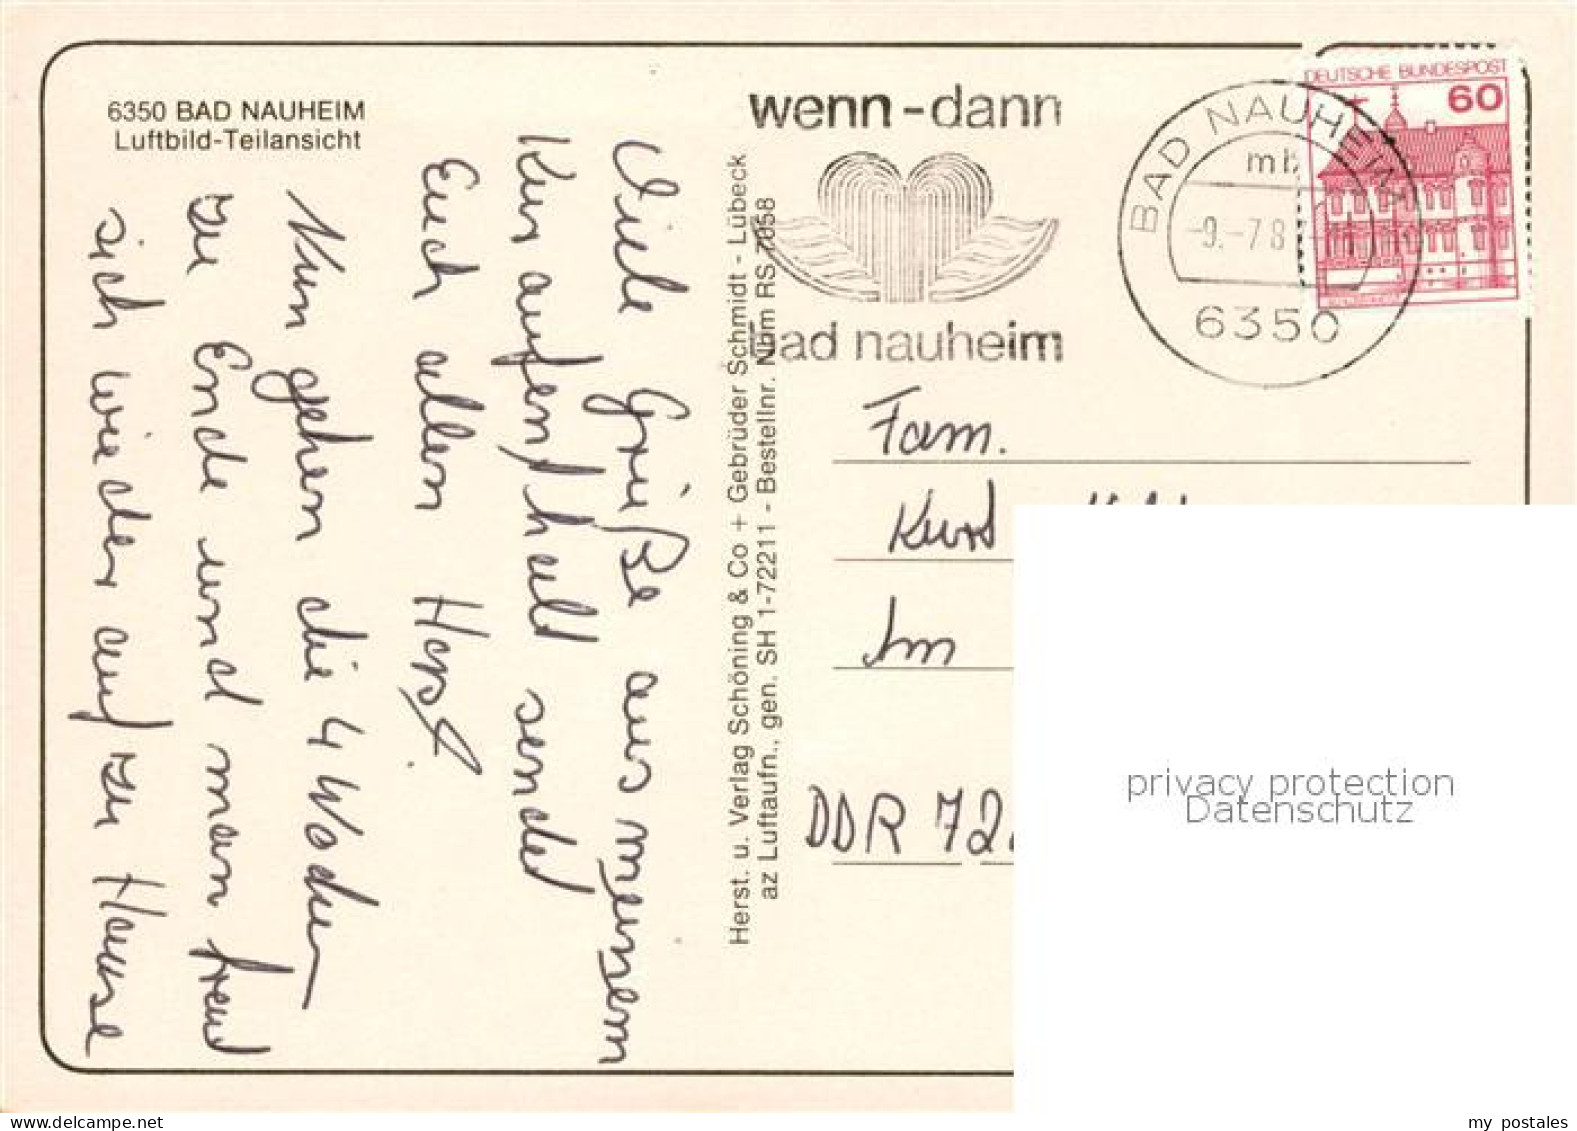 6350 BAD NAUHEIM
Luftbild-Teilansicht
Viele Grüße aus meinem
Kuraufenthalt sendet
Euch allen
Nun gehen die 4 Wochen
zu Ende und man freut
sich wieder auf zu Hause
Herst. u. Verlag Schöning & Co + Gebrüder Schmidt - Lübeck
az Luftaufn., gen. SH 1-72211 - Bestellnr. Nhm RS 7058
wenn-dann
bad nauheim
BAD NAUHEIM
mb
-9.-7.8
6350
DEUTSCHE BUNDESPOST
60
Fam.
Kurt
Im
DDR 72
privacy protection
Datenschutz
www.delcampe.net
my postales